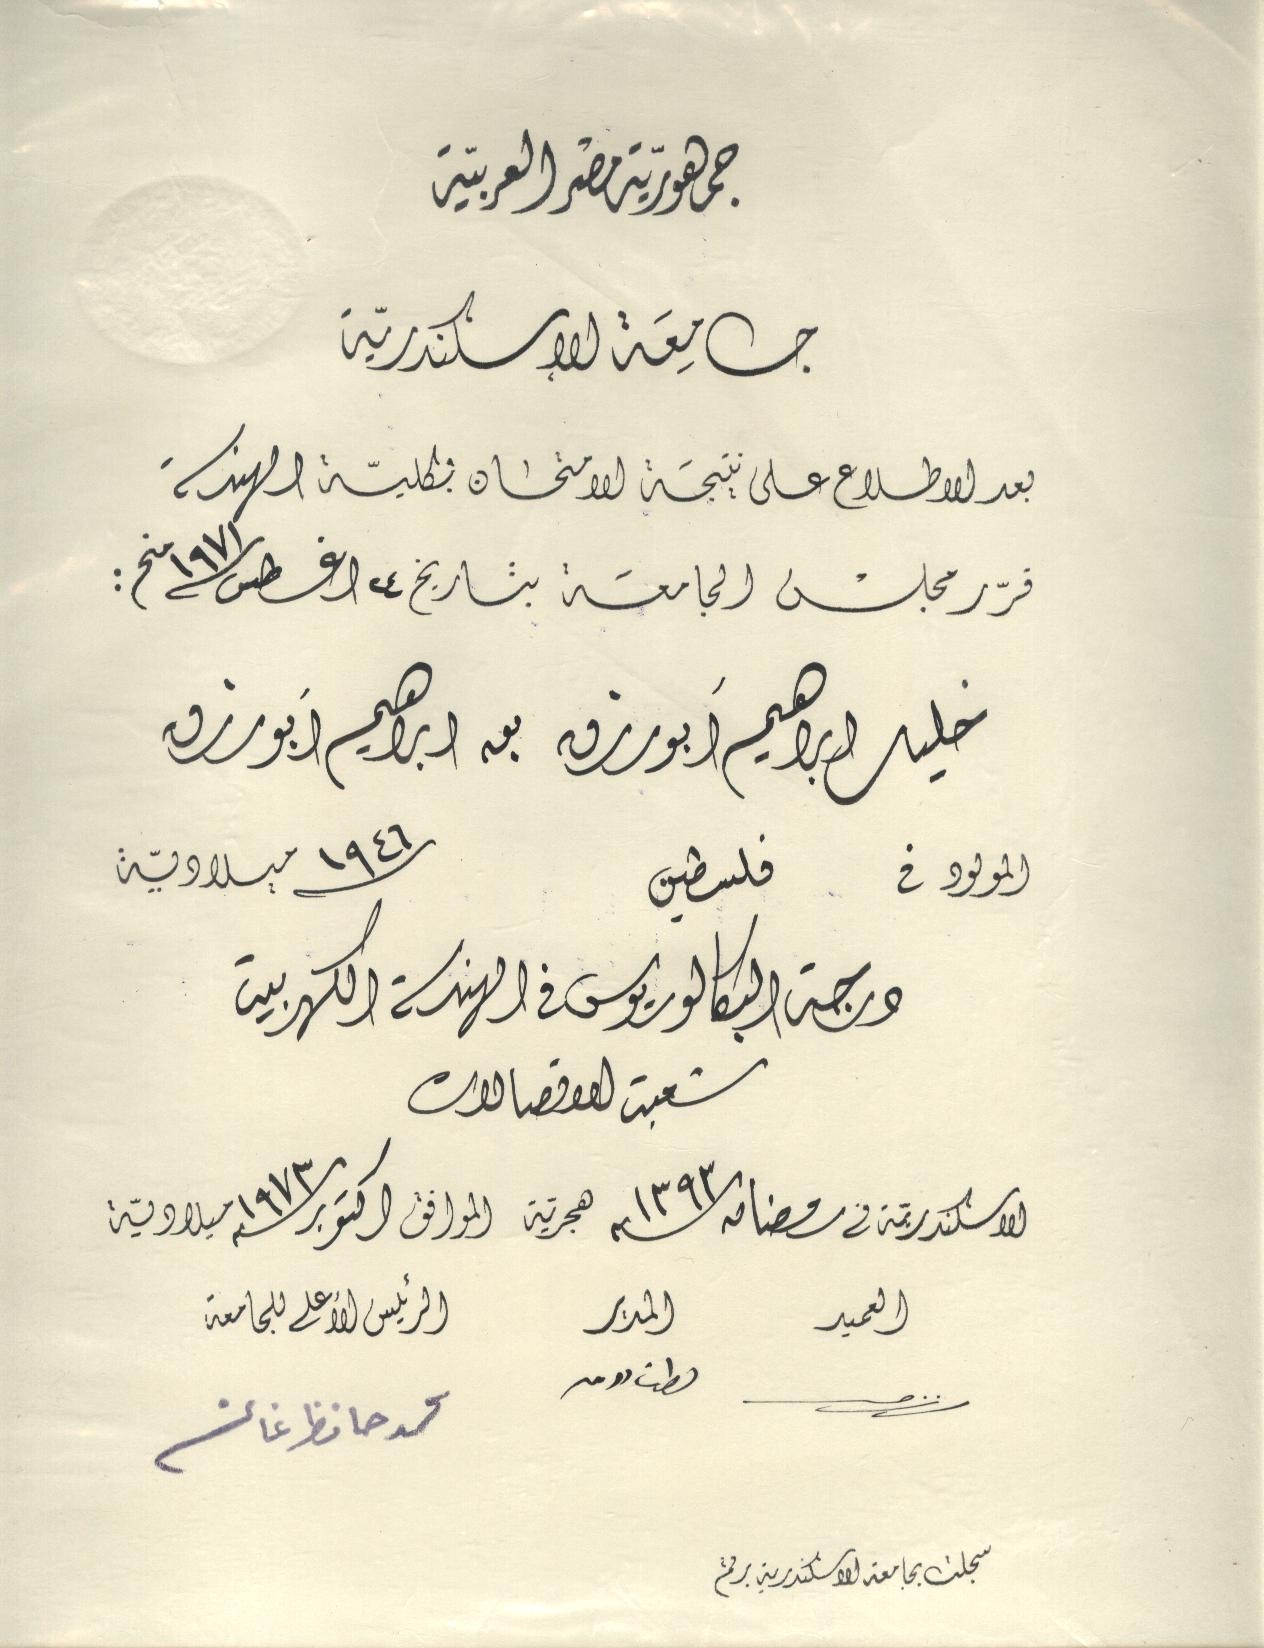 جمهوريّة مصر العربيّة
جامِعَة الإسكندريّة
بعد الاطلاع على نتيجَة الامتحان بكليّة الهندسة
قرّر مجلس الجامعَة بتاريخ ٢٤ اغسطس ١٩٧١ منح :
خليل ابراهيم أَبورزق بن ابراهيم أَبورزق
المولود في فلسطين ١٩٤٦ ميلاديّة
درجة البكالوريوس في الهندسة الكهربية
شعبة الاتصالات
الاسكندريّة في رمضان سنة ١٣٩٣ هجريّة الموافق اكتوبر سنة ١٩٧٣ ميلاديّة
العميد المدير الرئيس الأعلى للجامعة
لطفي دويدار
محمد حافظ غانم
سجلت بجامعة الاسكندرية برقم